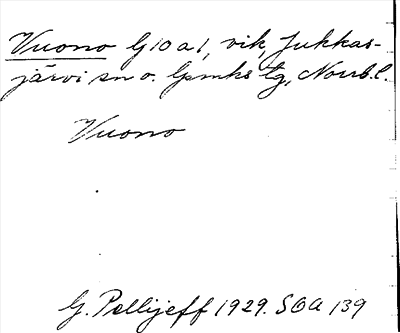 Vuono G10a1, vik, Jukkas-
järvi sn o. Gsmks tg, Norrb.l.
Vuono
G. Pellijeff 1929. SOA 139